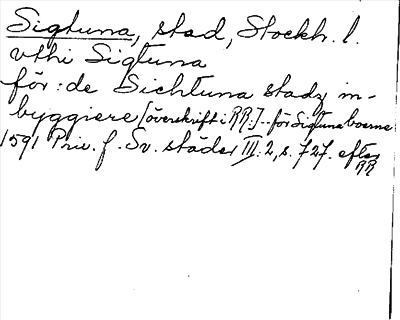 Sigtuna, stad, Stockh. l.
vthi Sigtuna
för: de Sichtuna stadz in-
byggiere [överskrift i RR:] -- för Sigtuna boerne
1591 Priv. f. Sv. städer III: 2, s. 727. efter
RR